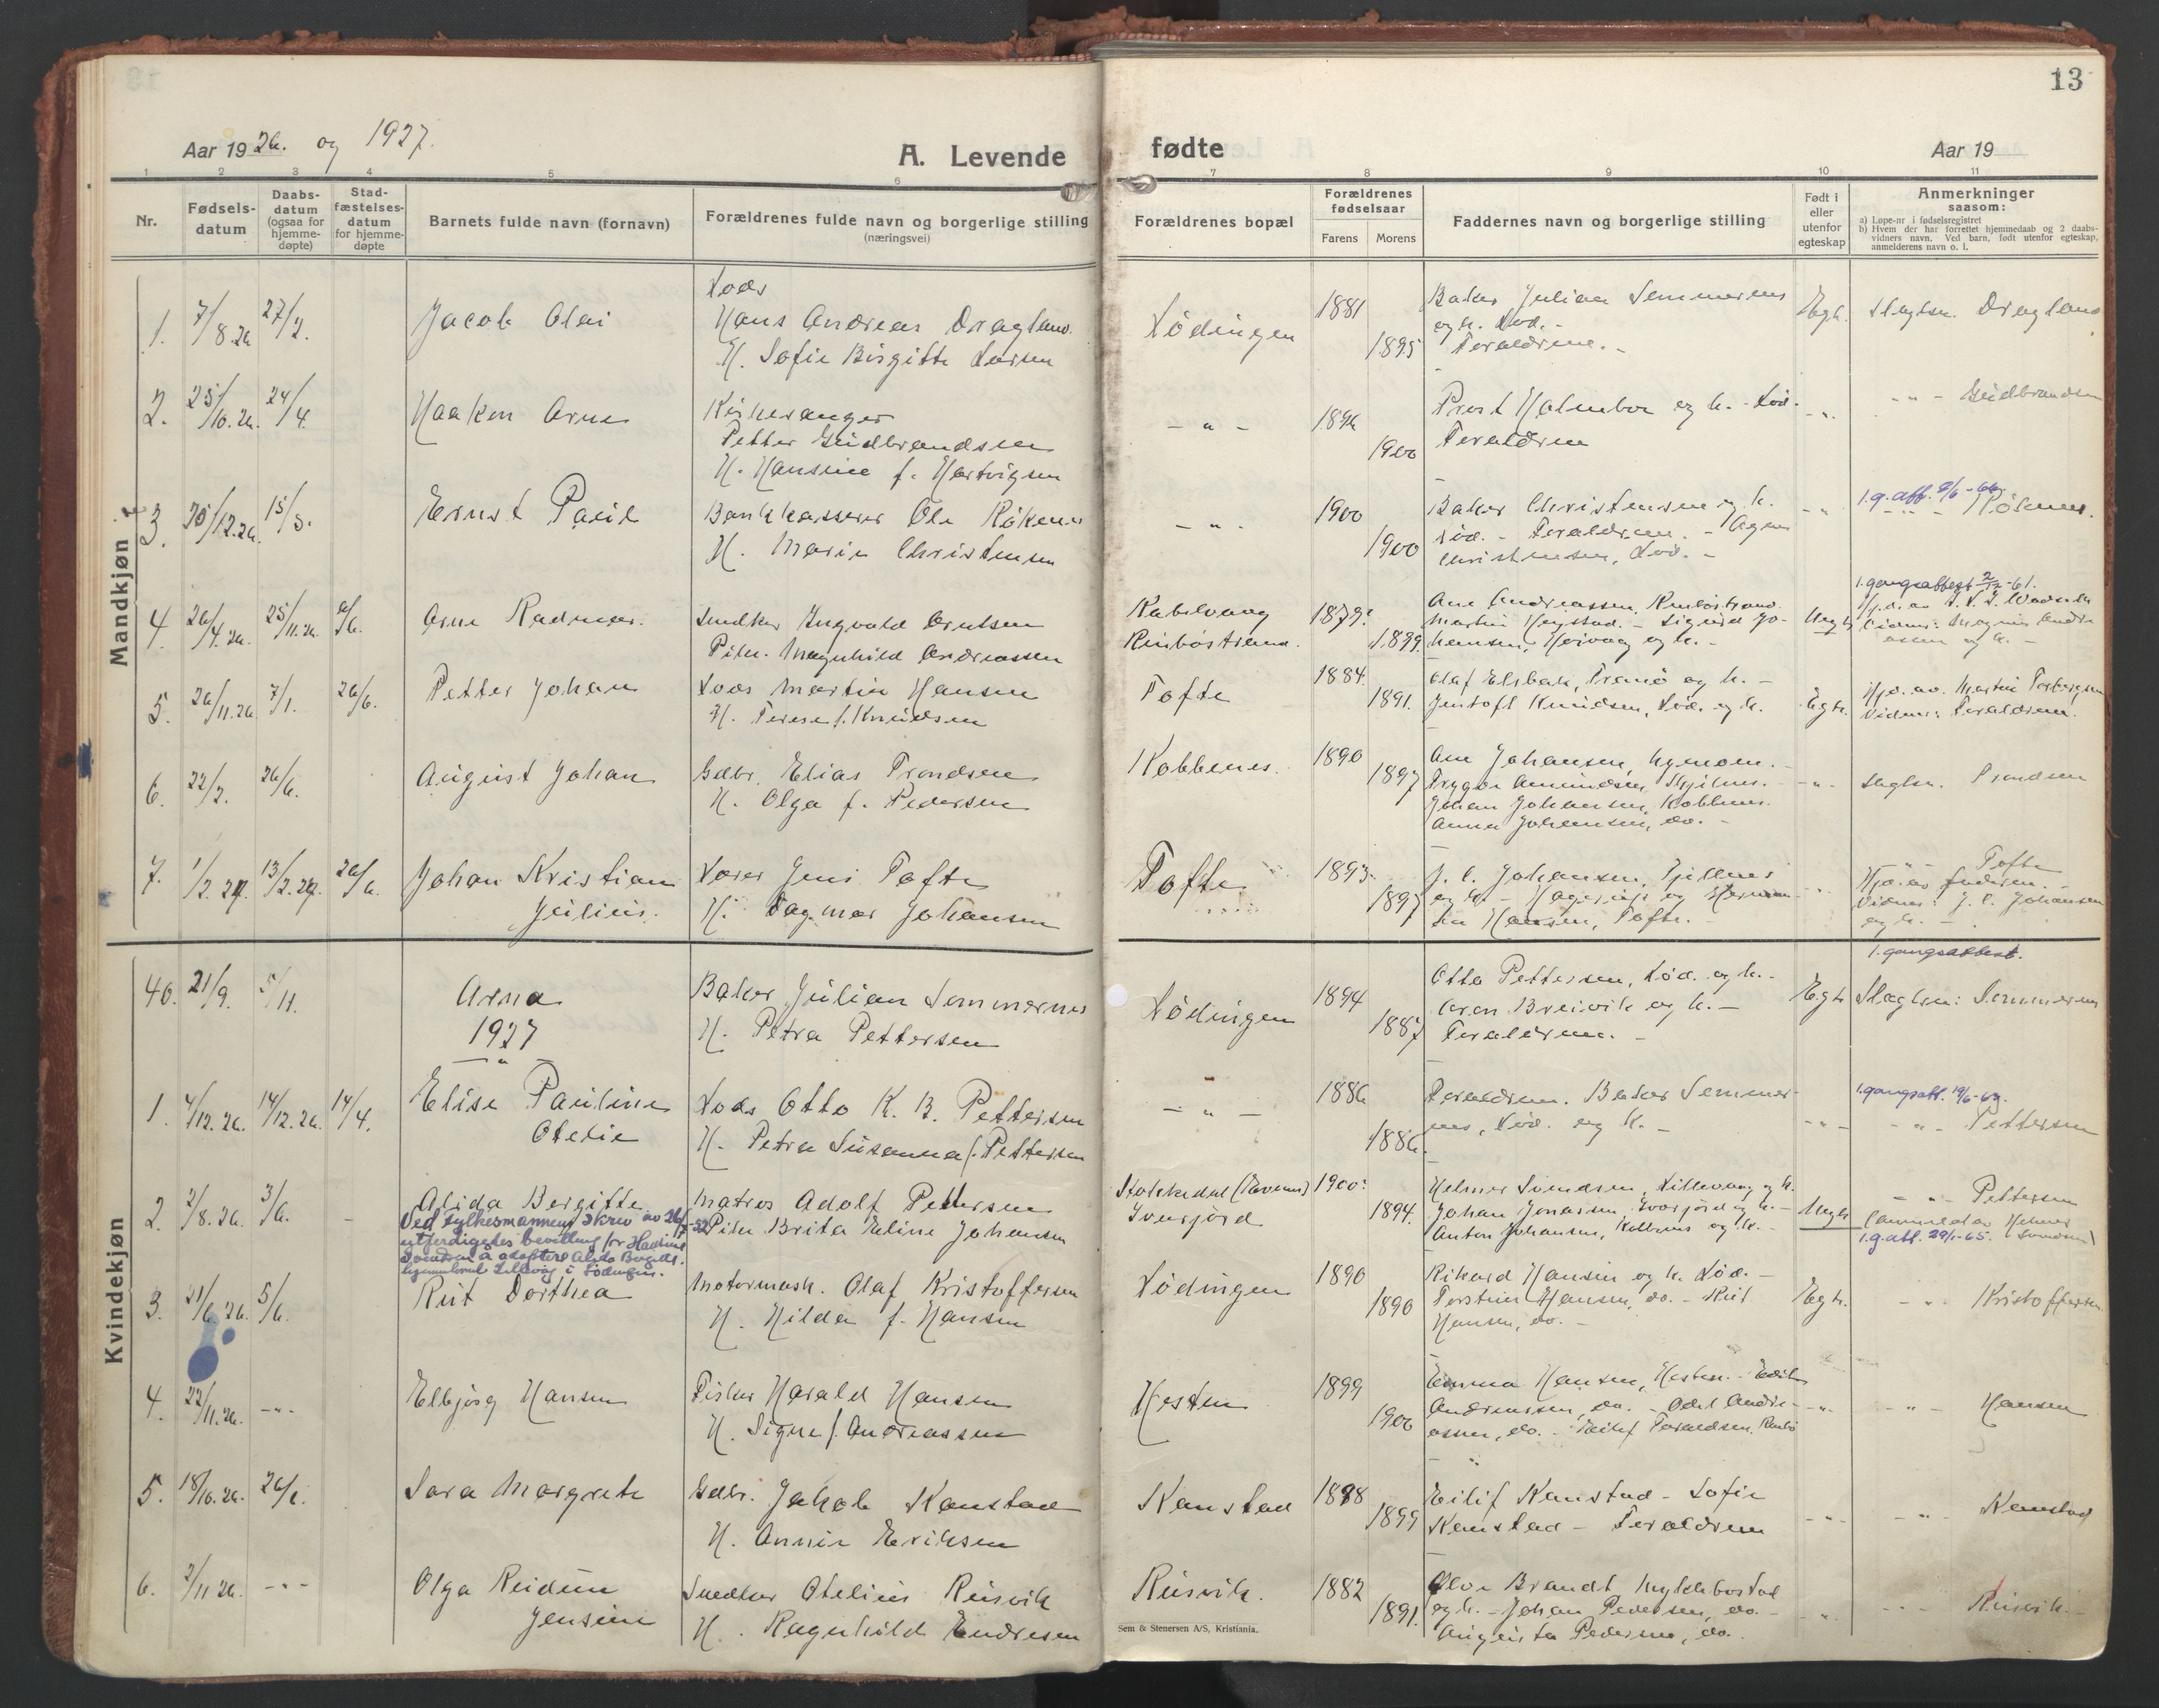 13
Aar 1926. og 1927.
A. Levende fødte
Aar 19
1 2 3 4 5 6 7 8 9 10 11
Nr.
Fødsels-
datum
Daabs-
datum
(ogsaa for
hjemme-
døpte)
Stad-
fæstelses-
datum
for hjemme-
døpte
Barnets fulde navn (fornavn)
Forældrenes fulde navn og borgerlige stilling
(næringsvei)
Forældrenes bopæl
Forældrenes
fødselsaar
Farens Morens
Faddernes navn og borgerlige stilling
Født i
eller
utenfor
egteskap
Anmerkninger
saasom:
a) Løpe-nr i fødselsregistret
b) Hvem der har forrettet hjemmedaab og 2 daabs-
vidners navn. Ved barn, født utenfor egteskap,
anmelderens navn o. l.
Mandkjøn
1. 7/8.26 27/2. Jacob Olai
Lods
Hans Andreas Dragland
H. Sofie Birgitte Larsen
Lødingen 1881 1895
Baker Julian Semmernes
og h. Lød. -
Foreldrene. -
Egt. Slagtsn. Dragland
2. 25/10.26. 24/4. Haakon Arne
Kirkesanger
Petter Guldbrandsen
H. Hansine f. Hartvigsen
- " - 1896 1900
Prost Holmboe og h. - Lød.
Foreldrene
- " - Guldbrandsen
3. 30/12.26. 15/5. Ernst Paul
Bankkasserer Ole Røkenes
H. Marie Christensen
- " - 1900 1900
Baker Christensen og h.
Lød. - Foreldrene. - Agnes
Christensen, Lød. -
1.g.att. 9/6-66.
- " - Røkenes.
4. 26/4.26. 25/11.26 Arne Radmar.
Smedker Ingvald Arntsen
Pike. Magnhild Andreassen
Kabelvaag
Rinbøstrand.
1879. 1899.
Ane Andreassen, Rinbøstrand.
Martin Heystad. - Sigurd Jo-
hansen, og h. -
Uegt.
1.gangsattest 2/12-61.
5. 26/11.26 7/1. 26/6. Petter Johan
Lods Martin Hansen
H. Terese f. Knudsen
Tofte 1884. 1891.
Olaf Elsbak, Tranø og h. -
Jentoft Knudsen, Lød. og h.
Egt.
Hjd. av. Martin
Vidner: Foreldrene.
6. 22/2. 26/6. August Johan
Gdbr. Elias Trondsen
H. Olga f. Pedersen
Kobbenes. 1890 1897
Ane Johansen,
Trygve Amundsen,
Johan Johansen, Kobbnes.
Anna Johansen, do. -
Slagtsn. Trondsen
7. 1/2.27. 13/2.27. 26/6. Johan Kristian
Julius.
Lærer Jens Tofte
H. Dagmar Johansen
Tofte 1893. 1897
J. C. Johansen,
og h. -
Hansen, Tofte.
- " - Tofte
Vidner: J. C. Johansen
og h. -
Kvindekjøn
40. 21/9. 5/11. Arna
Baker Julian Semmernes
H. Petra Pettersen
Lødingen 1894 1887
Otto Pettersen, Lød. og h. -
Aron Breivik og h. -
Foreldrene. -
Egt.
1.gangsattest.
Slagtsn: Semmernes
1927
- " -
1. 4/12.26. 14/12.26. 14/4. Elise Pauline
Otelie
Lods Otto K. B. Pettersen
H. Petra Susanna f. Pettersen
- " - 1886 1886.
Foreldrene. Baker Semmer-
nes, Lød. og h. -
1.gangsatt. 19/6-69.
- " - Pettersen
2. 2/8.26. 3/6. - Alida Bergitte
Ved fylkesmannens skriv av 26/5-32
utferdigedes bevilling for
å adoptere Alida Bergitte.
i Lødingen.
Matros Adolf Pettersen
Pike Brita Eline Johansen
Iversjord
1900. 1894.
Helmer Svendsen, Lillevaag og h.
Johan Jonassen, og h. -
Anton Johansen, Kobbnes og h. -
Uegt.
- " - Pettersen
(anmeldt av Helmer
1.g.att. 29/1-65. Svendsen)
3. 21/6.26. 5/6. Rut Dorthea
Motormask. Olaf Kristoffersen
H. Hilda f. Hansen
Lødingen 1890 1890
Rikard Hansen og h. Lød. -
Torstein Hansen, do. - Rut
Hansen, do. -
Egt.
- " - Kristoffersen
4. 22/11.26. - " - Elbjørg Hansen
Fisker Harald Hansen
H. Signe f. Andreassen
Hesten 1899 1900
Emma Hansen, Hesten. - Edit
Andreassen, do. - Odel Andre-
assen, do. -
- " - Hansen
5. 18/10.26. 26/6. Sara Margrete
Gdbr. Jakob Kanstad
H. Annie Eriksen
Kanstad 1898 1899
Eilif Kanstad - Sofie
Kanstad - Foreldrene
- " - Kanstad
6. 2/11 26. - " - Olga Reidun
Jensine
Smedker Otelius Rusvik
H. Ragnhild Endresen
Rusvik. 1882 1891.
Brandt,
og h. - Johan Pedersen, do. -
Augusta Pedersen, do.
- " - Rusvik. -
Sem & Stenersen A/S, Kristiania.